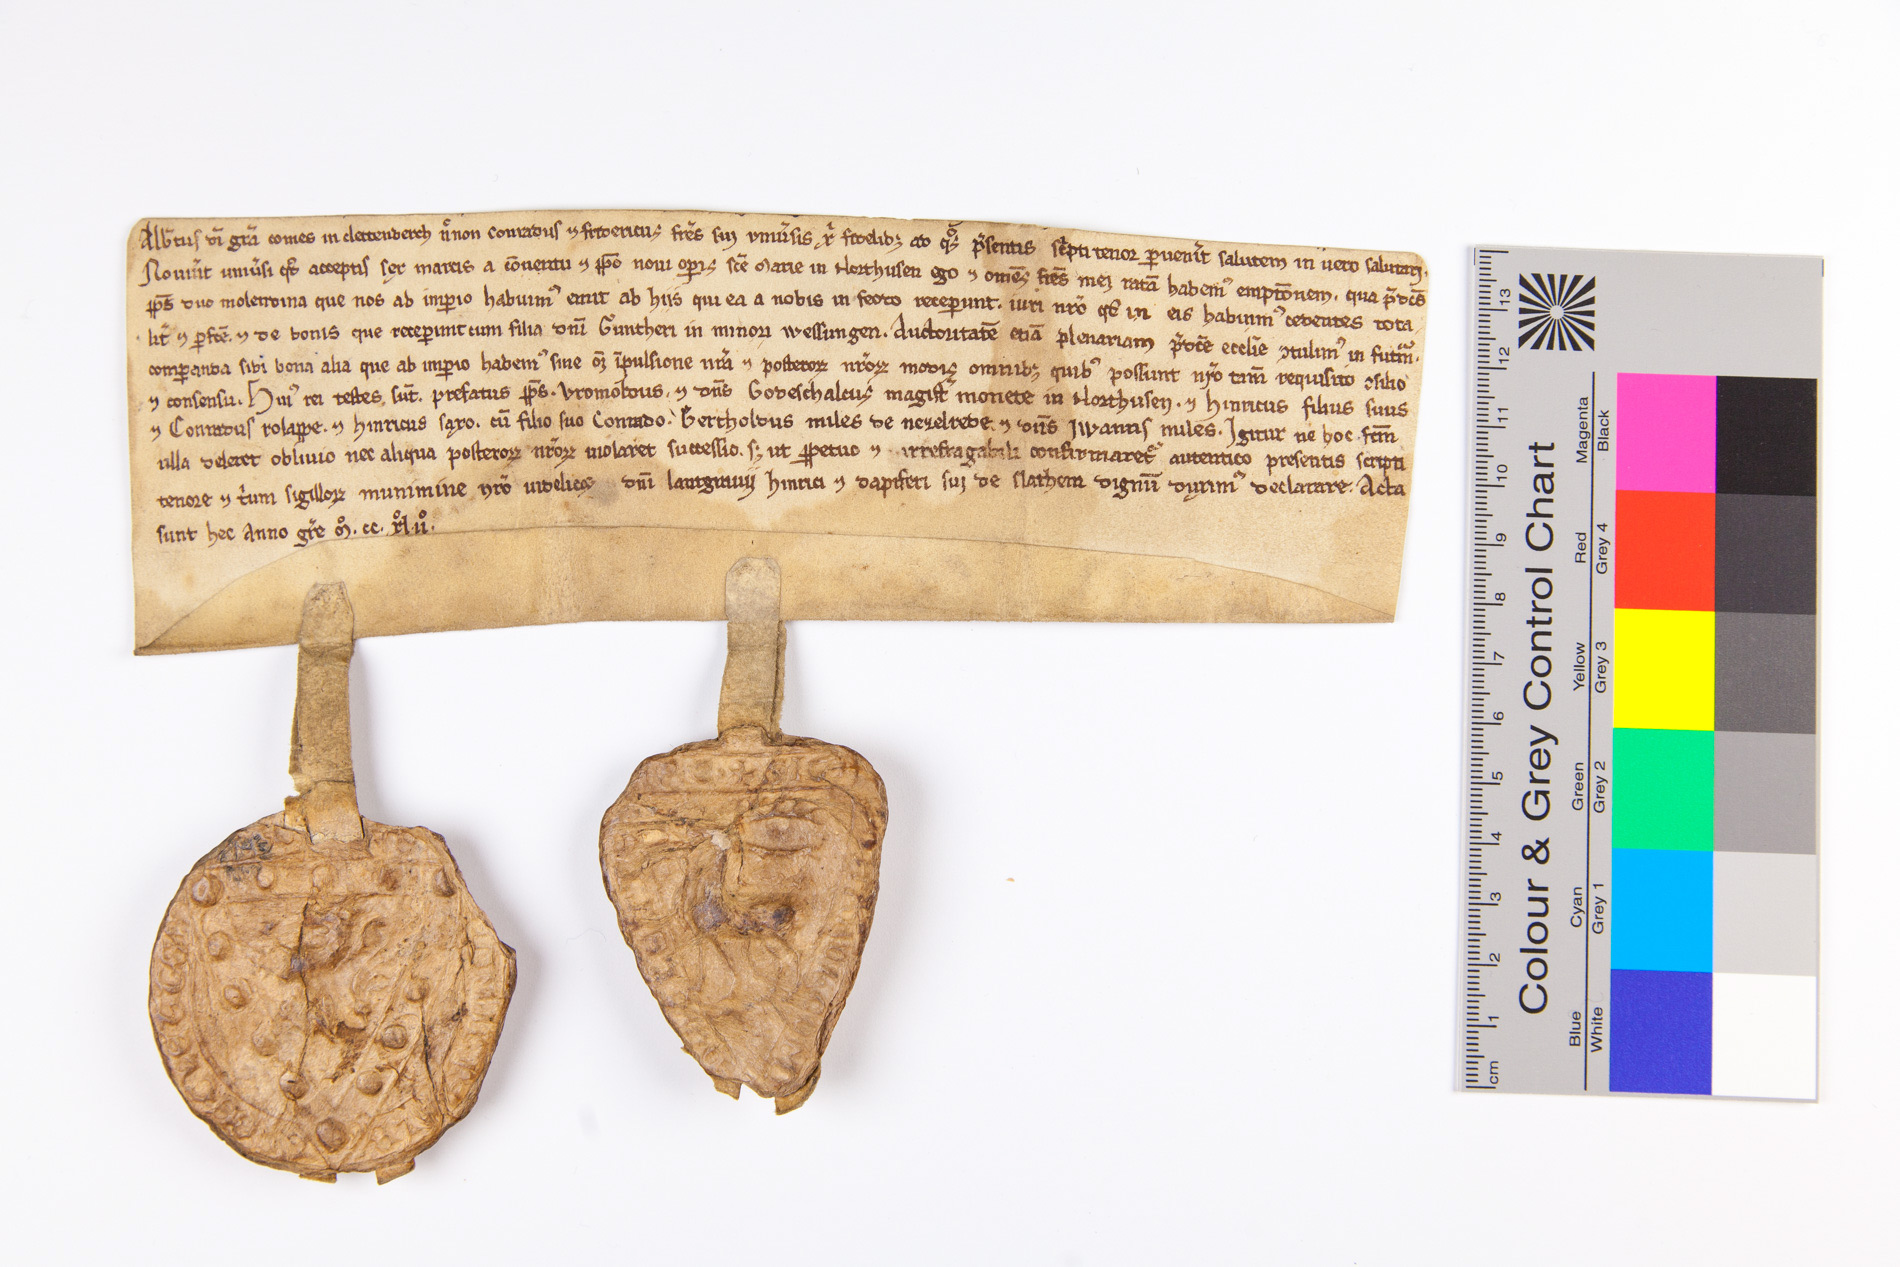 Alb̄tus di grā comes in clettenberch n̄non conradus ⁊ fridericus frēs sui vniūsis xp̄i fidelibꝫ ad q̄s p̄sentis sc̄pti tenor ꝑuen̄it salutem in uero salutari.
Nouit̄ uniūsi qd̄ acceptis sex marcis a c̄ouentu ⁊ p̄po noui opis sc̄e Marie in Northusen ego ⁊ omēs frēs mei ratā habemꝰ emptōnem. qua p̄dc̄s
pp̄s duo molendina que nos ab imperio habuimꝰ emit ab hiis qui ea a nobis in feodo receperunt. iuri nr̄o qd̄ in eis habuimꝰ cedentes tota
lit̄ ⁊ ꝑfc̄e. ⁊ de bonis que receperunt cum filia dn̄i Guntheri in minori wessungen. Auctoritatē etiā plenariam p̄dc̄e ecclīe ꝯtulimꝰ in futūm.
comꝑanda sibi bona alia que ab imperio habemꝰ sine om̄i īpulsione nr̄a ⁊ posteroꝝ nr̄oꝝ modis omnibꝫ quibꝰ possunt nr̄o tm̄ requisito ꝯsilio
⁊ consensu. Huiꝰ rei testes sūt. prefatus pp̄s. Vromoldus. ⁊ dn̄s Godeschalcus magist̄ monete in Northusen. ⁊ hinricus filius suus
⁊ Conradus rolappe. ⁊ hinricus saxo. cū filio suo Conrado. Bertholdus miles de nezelrede. ⁊ dn̄s Iwanus miles. Igitur ne hoc fc̄m
ulla deleret obliuio nec aliqua posteroꝝ nr̄oꝝ uiolaret successio. sꝫ ut ꝑpetuo ⁊ irrefragabili confirmaret̄ autentico presentis scripti
tenore ⁊ t̄um sigilloꝝ munimine nr̄o uidelicꝫ dn̄i lantgrauij hinrici ⁊ dapiferi sui de slathem dignū duximꝰ declarare. Acta
sunt hec Anno gr̄e M̊. cc. xl̊. ůº.
Colour & Grey Control Chart
Blue Cyan Green Yellow Red Magenta
White Grey 1 Grey 2 Grey 3 Grey 4 Black
cm 1 2 3 4 5 6 7 8 9 10 11 12 13